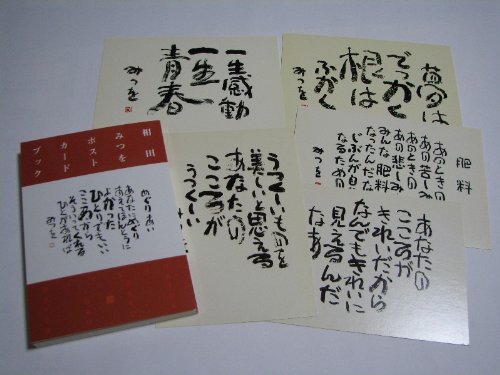 一生感動
一生
青春
みつを
夢は
でっかく
根は
ふかく
みつを
相田
みつを
ポスト
カード
ブック
めぐりあい
あなたにめぐり
あえてほんとうに
よかった
ひとりでもいい
こころから
そういってくれる
ひとがあれば
みつを
うつくしいものを
美しいと思える
あなたの
こころが
うつくしい
みつを
肥料
あのときの
あの苦しみも
あのときの
あの悲しみも
みんな肥料に
なったんだなあ
じぶんが自分に
なるための
みつを
あなたの
こころが
きれいだから
なんでもきれいに
見えるんだ
なあ